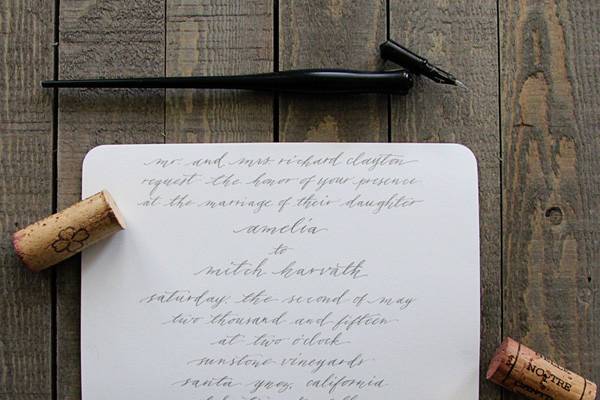 mr. and mrs richard clayton
request the honor of your presence
at the marriage of their daughter
amelia
to
mitch harvath
saturday, the second of may
two thousand and fifteen
at two o'clock
sunstone vineyards
santa ynez, california
NOTRE